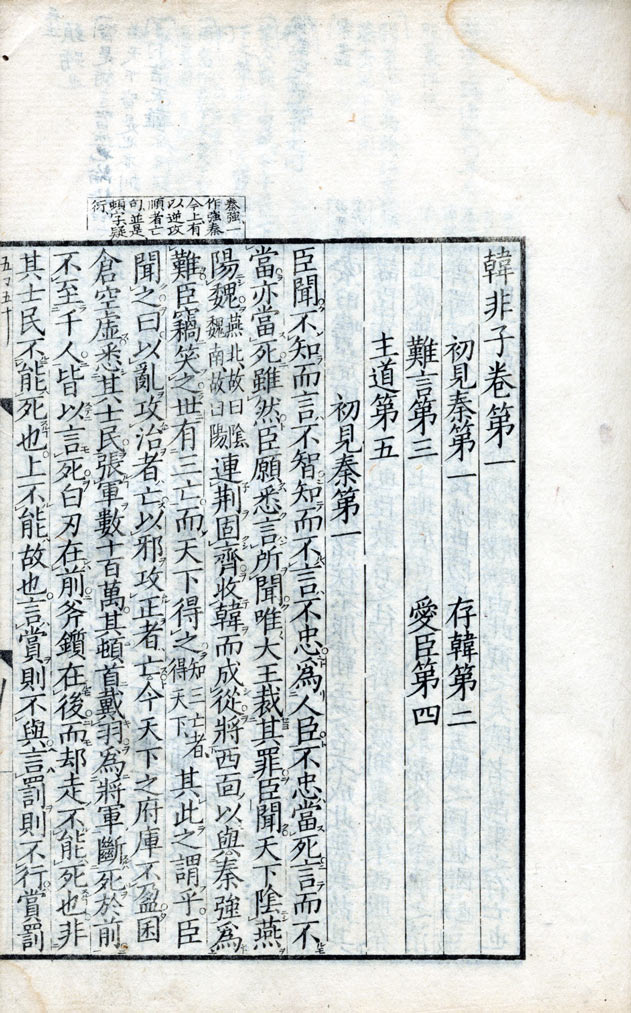 韓非子卷第一
初見秦第一 存韓第二
難言第三 愛臣第四
主道第五
初見秦第一
臣聞不知而言不智知而不言不忠爲人臣不忠當死言而不
當亦當死雖然臣願悉言所聞唯大王裁其罪臣聞天下陰燕
陽魏燕北故曰陰魏南故曰陽連荆固齊收韓而成從將西面以與秦強爲
難臣竊笑之世有三亡而天下得之知三亡者得天下其此之謂乎臣
聞之曰以亂攻治者亡以邪攻正者亡今天下之府庫不盈囷
倉空虛悉其士民張軍數十百萬其頓首戴羽爲將軍斷死於前
不至千人皆以言死白刃在前斧鑕在後而却走不能死也非
其士民不能死也上不能故也言賞則不與言罰則不行賞罰
秦強一
作強秦
今上有
以逆攻
順者亡
句並是
頓字疑
衍